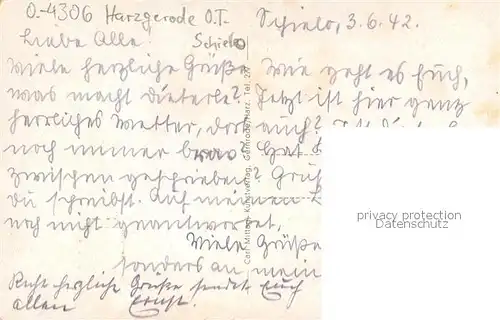 O.-4306 Harzgerode O.T.
Schielo
Schielo, 3.6.42.
Liebe Alle!
Viele herzliche Grüße
was macht Dieterle?
herrliches Wetter, dort auch?
noch immer brav? Hat
zwischen geschrieben?
du schreibst. Auf meinen
noch nicht geantwortet,
Viele Grüße
sonders an mein
Wie geht es Euch,
Jetzt ist hier ganz
Recht herzliche Grüße sendet Euch
allen Ernst.
Carl Mittag, Kunstverlag, Gernrode/Harz. Tel. 27
privacy protection
Datenschutz